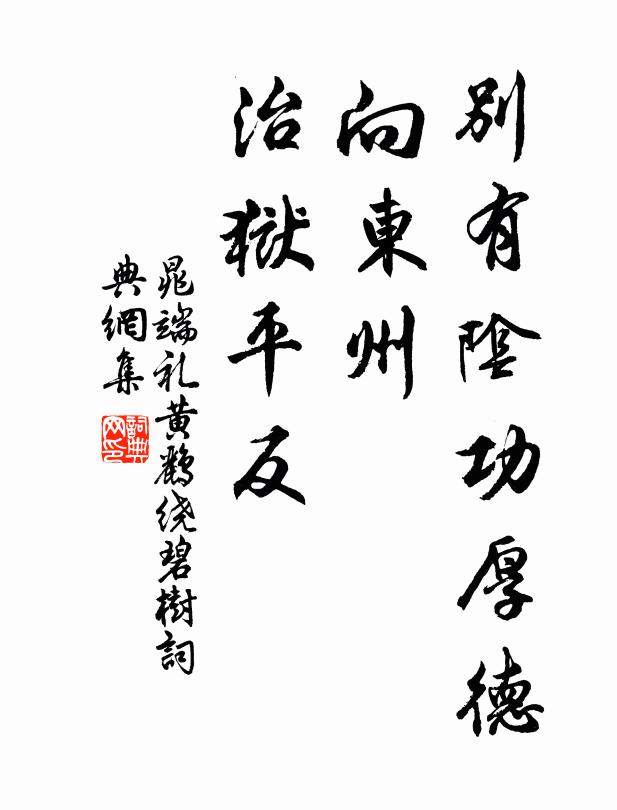 別有陰功厚德
向東州
治獄平反
晁端礼黄鶴绕碧樹詞
典網集
詞典网印